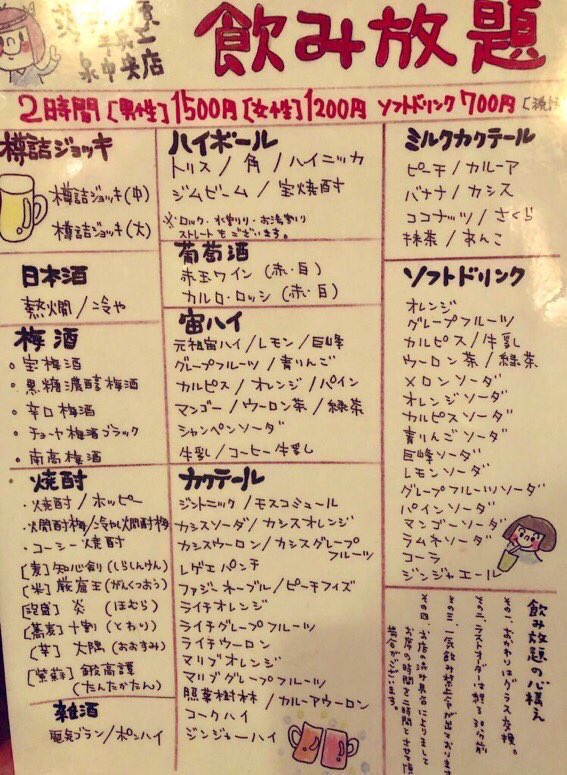 泉中央店
飲み放題
2時間 [男性] 1500円 [女性] 1200円 ソフトドリンク 700円
樽詰ジョッキ
樽詰ジョッキ(中)
樽詰ジョッキ(大)
日本酒
熱燗/冷や
梅酒
・宝梅酒
・黒糖濃醇梅酒
・辛口梅酒
・チョーヤ梅酒ブラック
・南高梅酒
焼酎
・焼酎/ホッピー
・燗酎梅/冷やし燗酎梅
・コーシー焼酎
[麦] 知心剣(しらしんけん)
[米] 巌窟王(がんくつおう)
炎 (ほむら)
[蕎麦] 十割 (とわり)
[芋] 大隅 (おおすみ)
[紫蘇] 鍛高譚
(たんたかたん)
雑酒
電気ブラン/ポンハイ
ハイボール
トリス/角/ハイニッカ
ジムビーム/宝焼酎
※ロック・水割り・お湯割り
ストレートもございます。
葡萄酒
赤玉ワイン (赤・白)
カルロ・ロッシ (赤・白)
宙ハイ
元祖宙ハイ/レモン/巨峰
グレープフルーツ/青りんご
カルピス/オレンジ/パイン
マンゴー/ウーロン茶/緑茶
シャンペンソーダ
牛乳/コーヒー牛乳
カクテール
ジントニック/モスコミュール
カシスソーダ/カシスオレンジ
カシスウーロン/カシスグレープ
フルーツ
レゲエパンチ
ファジーネーブル/ピーチフィズ
ライチオレンジ
ライチグレープフルーツ
ライチウーロン
マリブオレンジ
マリブグレープフルーツ
照葉樹林/カルーアウーロン
コークハイ
ジンジャーハイ
ミルクカクテール
ピーチ/カルーア
バナナ/カシス
ココナッツ/さくら
抹茶/あんこ
ソフトドリンク
オレンジ
グレープフルーツ
カルピス/牛乳
ウーロン茶/緑茶
メロンソーダ
オレンジソーダ
カルピスソーダ
青りんごソーダ
巨峰ソーダ
レモンソーダ
グレープフルーツソーダ
パインソーダ
マンゴーソーダ
ラムネソーダ
コーラ
ジンジャエール
飲み放題の心構え
その一、おかわりはグラス交換。
その二、ラストオーダーは終る30分前
その三、一気飲み禁止令が出ております
その四、お店の混み具合によりまして
お席の時間を二時間とさせて頂
場合がございます。